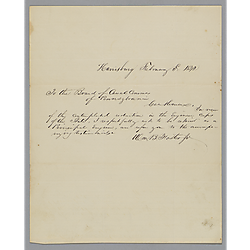 Harrisburg February 8. 1840.
To the Board of Canal Comrs
of Pennsylvania
Gentlemen,
In view
of the contemplated reduction in the Engineer Corps
of the State, I respectfully ask to be retained as a
Principal Engineer, and refer you to the accompa-
nying testimonials.
Wm B. Foster Jr